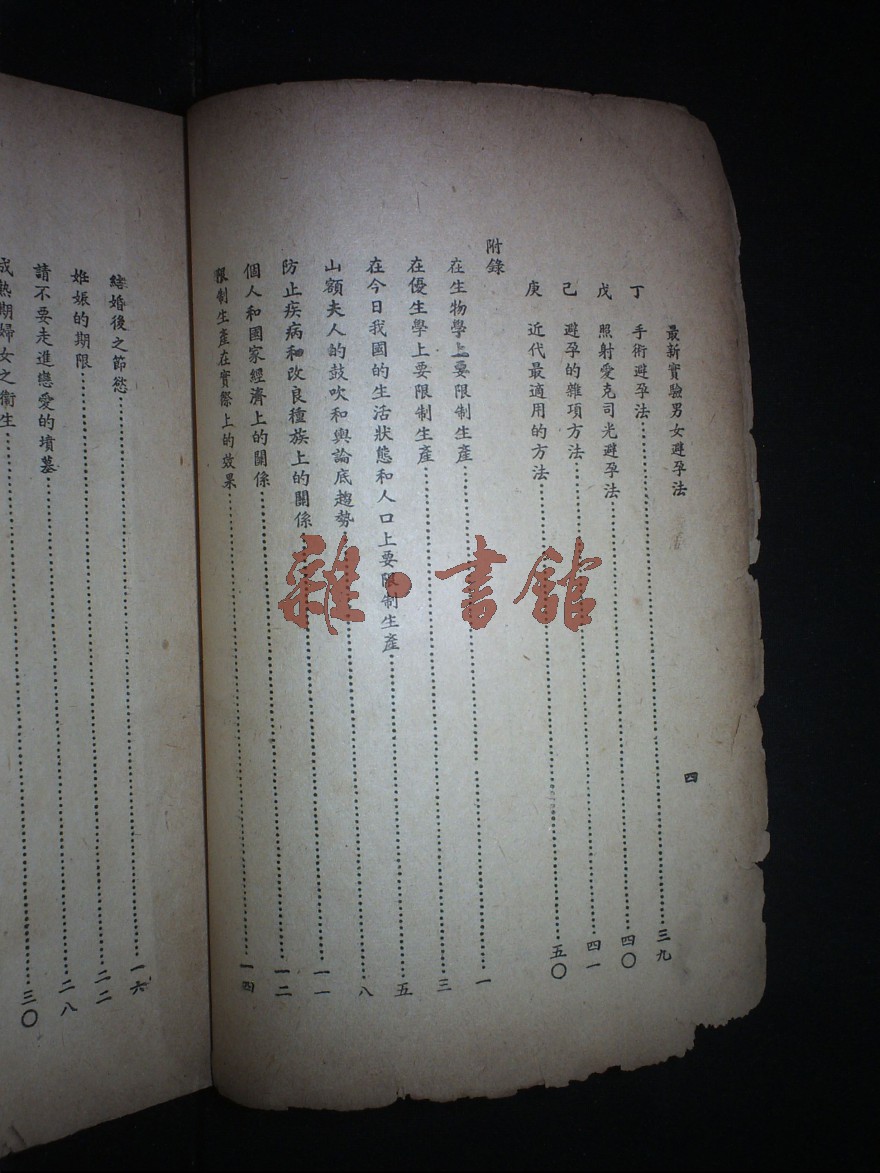 最新實驗男女避孕法
四
丁 手術避孕法 三九
戊 照射愛克司光避孕法 四〇
己 避孕的雜項方法 四一
庚 近代最適用的方法 五〇
附錄
在生物學上要限制生產 一
在優生學上要限制生產 三
在今日我國的生活狀態和人口上要限制生產 五
山額夫人的鼓吹和輿論底趨勢 八
防止疾病和改良種族上的關係 一一
個人和國家經濟上的關係 一二
限制生產在實際上的效果 一四
結婚後之節慾 一六
姙娠的期限 二二
請不要走進戀愛的墳墓 二八
成熟期婦女之衞生 三〇
雜·書館